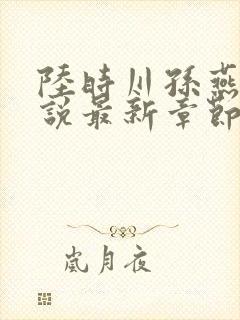 陸時川孫燕
說最新章節
嵐月夜